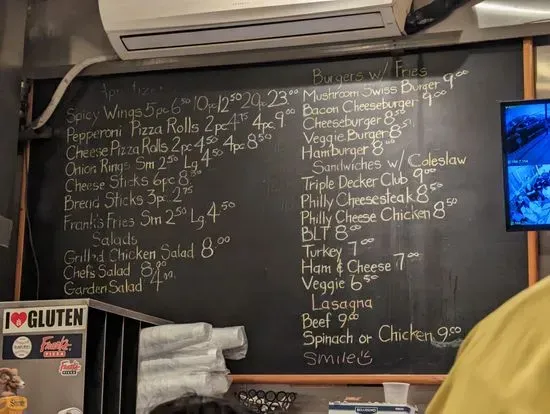 Spicy Wings 5pc 6.50 10pc 12.50 20pc 23.00
Pepperoni Pizza Rolls 2pc 4.75 4pc 9.00
Cheese Pizza Rolls 2pc 4.50 4pc 8.50
Onion Rings Sm 2.50 Lg 4.50
Cheese Sticks 6pc 8.50
Bread Sticks 3pc 2.75
Frank's Fries Sm 2.50 Lg 4.50
Salads
Grilled Chicken Salad 8.00
Chef's Salad 8.00
Garden Salad 4.00
Burgers w/ Fries
Mushroom Swiss Burger 9.00
Bacon Cheeseburger 9.00
Cheeseburger 8.50
Veggie Burger 8.50
Hamburger 8.00
Sandwiches w/ Coleslaw
Triple Decker Club 9.00
Philly Cheesesteak 8.50
Philly Cheese Chicken 8.50
BLT 8.00
Turkey 7.00
Ham & Cheese 7.00
Veggie 6.50
Lasagna
Beef 9.00
Spinach or Chicken 9.00
Smile
I GLUTEN
Frank's
PIZZA
Frank's
PIZZA